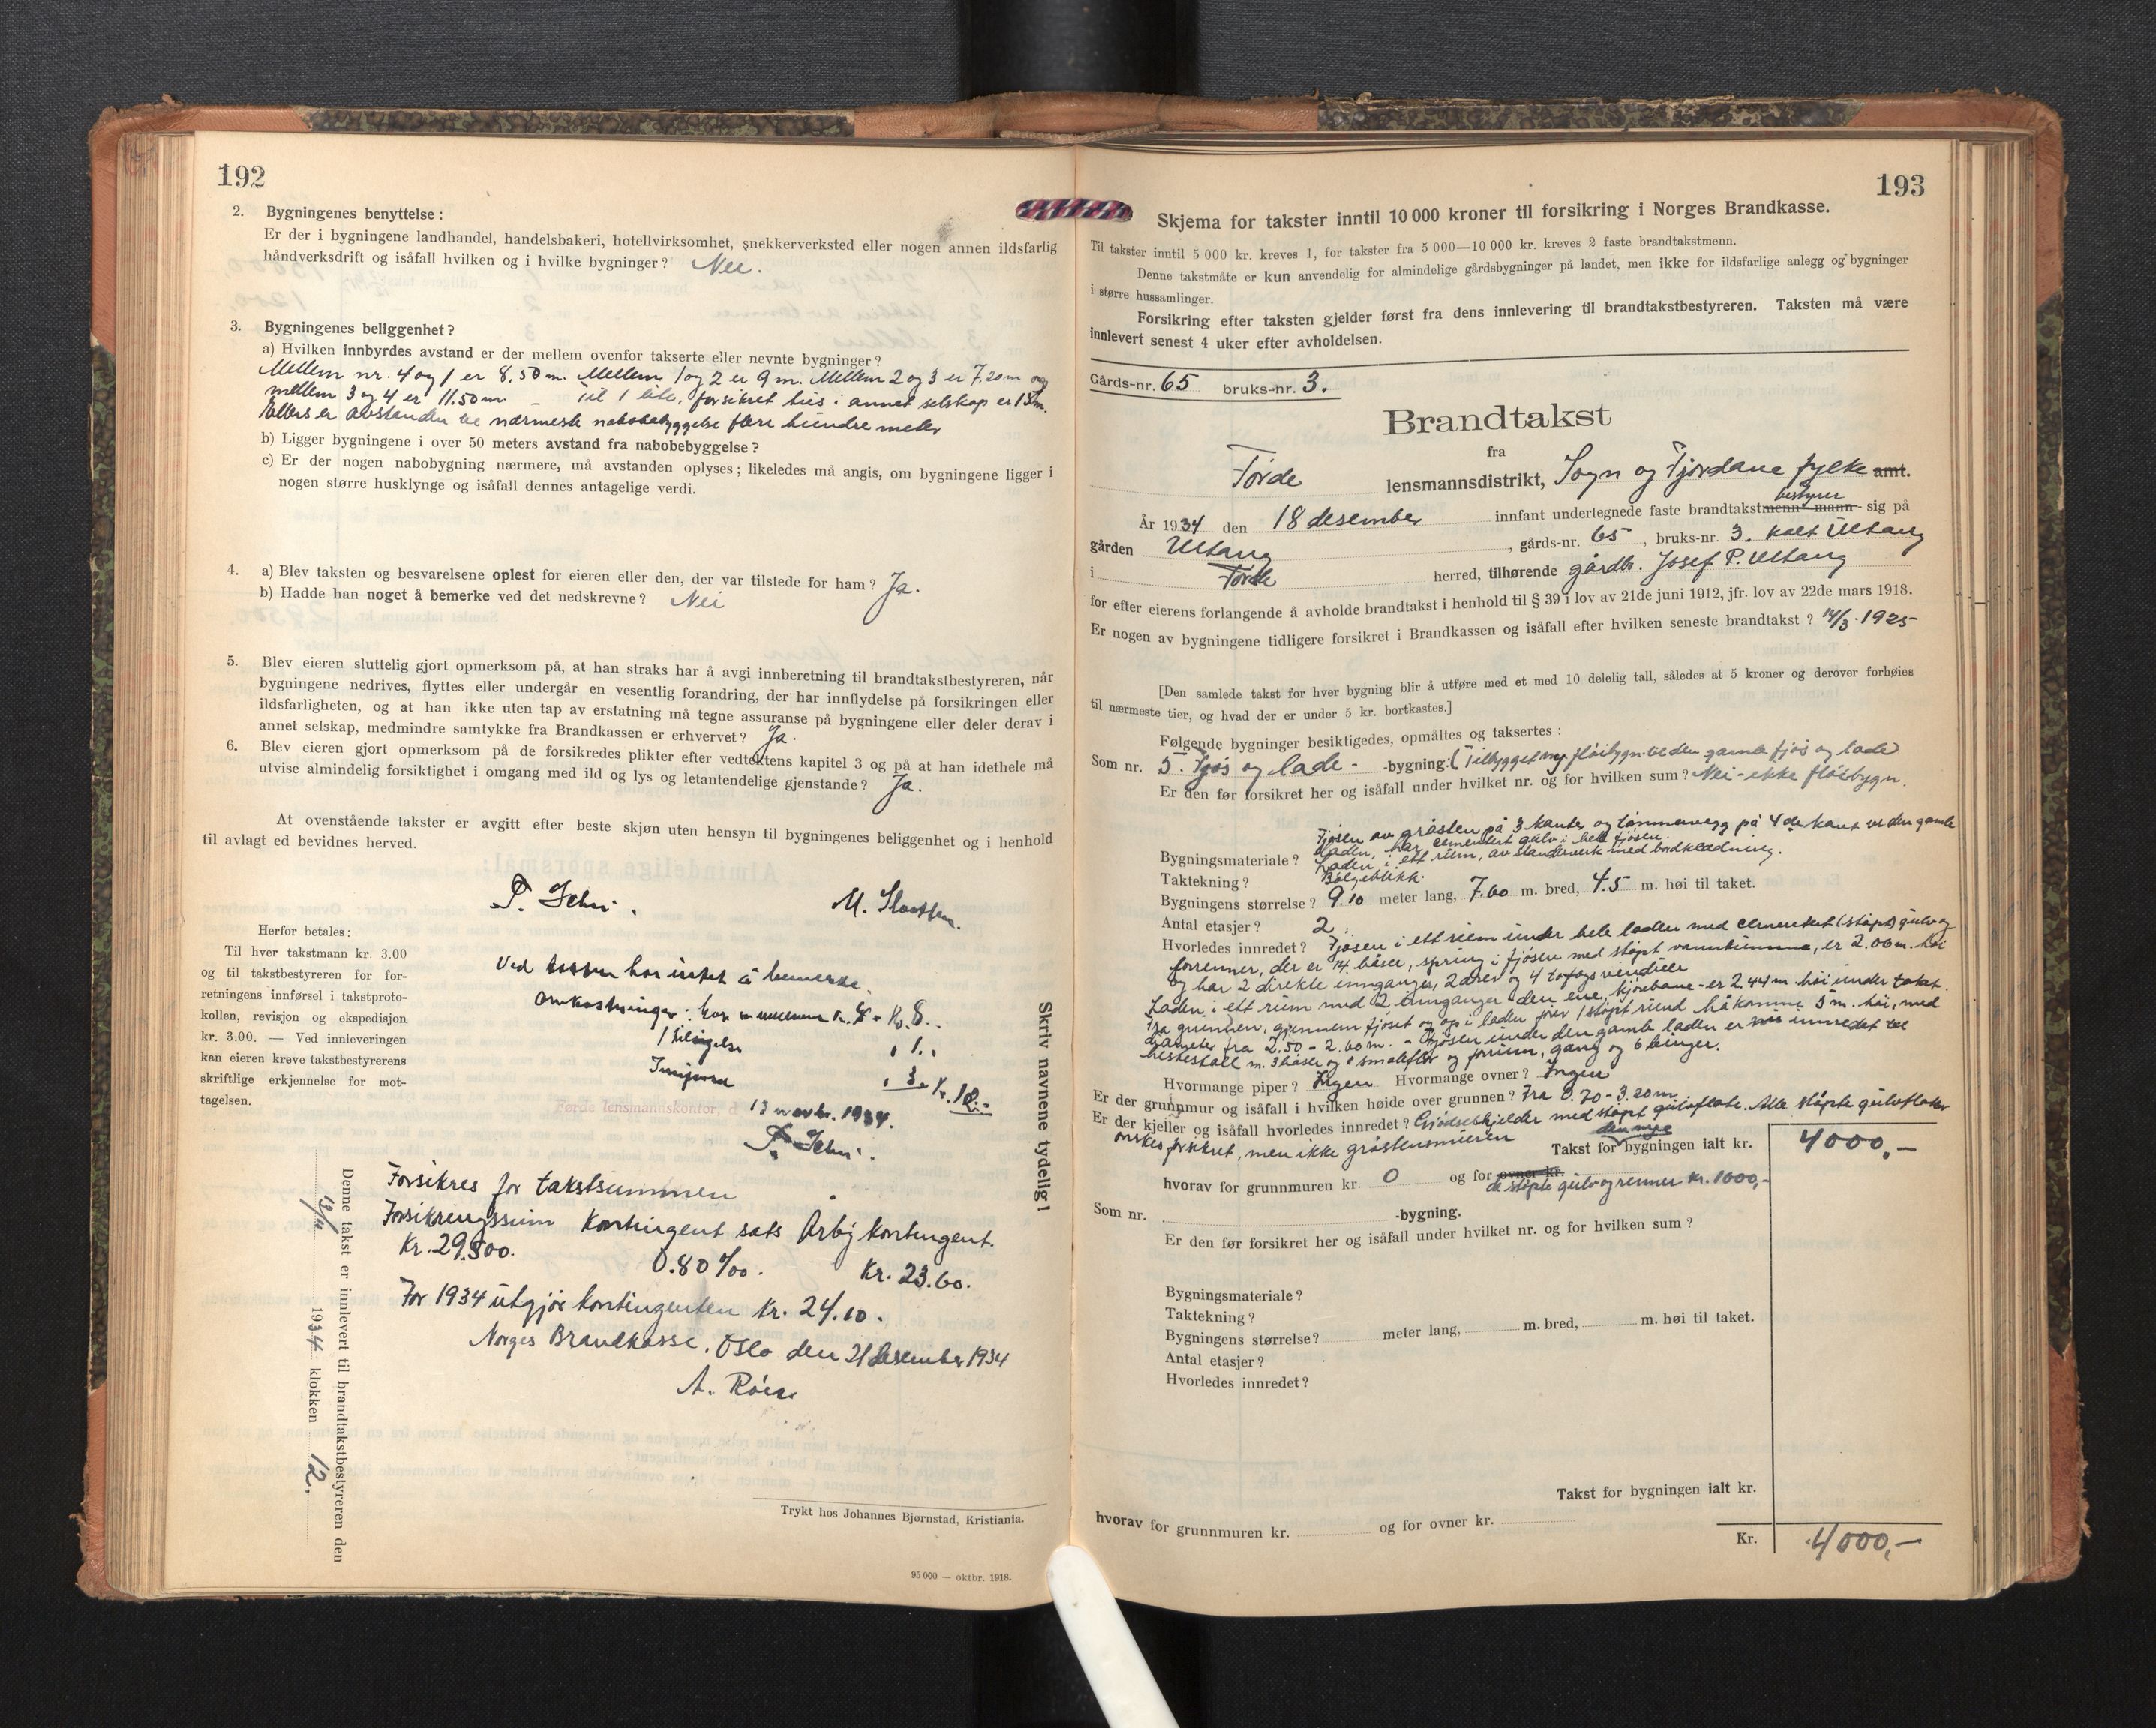 192
2. Bygningenes benyttelse:
Er der i bygningene landhandel, handelsbakeri, hotellvirksomhet, snekkerverksted eller nogen annen ildsfarlig
håndverksdrift og isåfall hvilken og i hvilke bygninger? Nei.
3. Bygningenes beliggenhet?
a) Hvilken innbyrdes avstand er der mellem ovenfor takserte eller nevnte bygninger?
Mellem nr. 4 og 1 er 8,50 m. Mellem 1 og 2 er 9 m. Mellem 2 og 3 er 7.20 m og
mellem 3 og 4 er 11.50 m – Til 1 lite, forsikret hus i annet selskap er 15 m.
Ellers er avstanden til nærmeste nabobebyggelse flere hundre meter
b) Ligger bygningene i over 50 meters avstand fra nabobebyggelse?
c) Er der nogen nabobygning nærmere, må avstanden oplyses; likeledes må angis, om bygningene ligger i
nogen større husklynge og isåfall dennes antagelige verdi.
4. a) Blev taksten og besvarelsene oplest for eieren eller den, der var tilstede for ham? Ja.
b) Hadde han noget å bemerke ved det nedskrevne? Nei
5. Blev eieren sluttelig gjort opmerksom på, at han straks har å avgi innberetning til brandtakstbestyreren, når
bygningene nedrives, flyttes eller undergår en vesentlig forandring, der har innflydelse på forsikringen eller
ildsfarligheten, og at han ikke uten tap av erstatning må tegne assuranse på bygningene eller deler derav i
annet selskap, medmindre samtykke fra Brandkassen er erhvervet? Ja.
6. Blev eieren gjort opmerksom på de forsikredes plikter efter vedtektens kapitel 3 og på at han idethele må
utvise almindelig forsiktighet i omgang med ild og lys og letantendelige gjenstande? Ja.
At ovenstående takster er avgitt efter beste skjøn uten hensyn til bygningenes beliggenhet og i henhold
til avlagt ed bevidnes herved.
Herfor betales:
Til hver takstmann kr. 3.00
og til takstbestyreren for for-
retningens innførsel i takstproto-
kollen, revisjon og ekspedisjon
kr. 3.00. — Ved innleveringen
kan eieren kreve takstbestyrerens
skriftlige erkjennelse for mot-
tagelsen.
Ved taksten har intet å bemerke.
Omkostninger: kr. 8.
Førde lensmannskontor, d 13 novbr. 1934.
Skriv navnene tydelig!
Forsikres for takstsummen
Forsikringssum Kontingent sats Årlig kontingent.
Kr. 29.500. 0.80 ‰. Kr. 23.60.
For 1934 utgjør kontingenten kr. 24.10.
Norges Brandkasse, Oslo den 21 desember 1934
Denne takst er innlevert til brandtakstbestyreren den
13/11 1934 klokken 12.
Trykt hos Johannes Bjørnstad, Kristiania.
95 000 — oktbr. 1918.
193
Skjema for takster inntil 10 000 kroner til forsikring i Norges Brandkasse.
Til takster inntil 5 000 kr. kreves 1, for takster fra 5 000—10 000 kr. kreves 2 faste brandtakstmenn.
Denne takstmåte er kun anvendelig for almindelige gårdsbygninger på landet, men ikke for ildsfarlige anlegg og bygninger
i større hussamlinger.
Forsikring efter taksten gjelder først fra dens innlevering til brandtakstbestyreren. Taksten må være
innlevert senest 4 uker efter avholdelsen.
Gårds-nr. 65 bruks-nr. 3.
Brandtakst
fra
Førde lensmannsdistrikt, Sogn og Fjordane fylke amt.
bestyrer
År 1934 den 18 desember innfant undertegnede faste brandtakstmenn mann sig på
gården Ullang, gårds-nr. 65, bruks-nr. 3. kalt Ullang
i Førde herred, tilhørende gårdb. Josef P. Ullang
for efter eierens forlangende å avholde brandtakst i henhold til § 39 i lov av 21de juni 1912, jfr. lov av 22de mars 1918.
Er nogen av bygningene tidligere forsikret i Brandkassen og isåfall efter hvilken seneste brandtakst? 14/3 1925
[Den samlede takst for hver bygning blir å utføre med et med 10 delelig tall, således at 5 kroner og derover forhøies
til nærmeste tier, og hvad der er under 5 kr. bortkastes.]
Følgende bygninger besiktigedes, opmåltes og taksertes:
Som nr. 5. Fjøs og lade - -bygning: (Tilbygget ny fløibygn. til den gamle fjøs og lade)
Er den før forsikret her og isåfall under hvilket nr. og for hvilken sum? Nei - ikke fløibygn.
Fjøsen av gråsten på 3 kanter og tømmervegg på 4de kant ved den gamle
laden, har cementert gulv i hele fjøsen.
Bygningsmateriale? Laden i ett rum, av standerverk med bordklædning.
Taktekning? Bølgeblikk.
Bygningens størrelse? 9.10 meter lang, 7.60 m. bred, 4.5 m. høi til taket.
Antal etasjer? 2.
Hvorledes innredet? Fjøsen i ett rum under hele laden med cementert (støpt) gulv og
forrenner, der er 14 båser, spring i fjøsen med støpt vannkumme, er 2.06 m. høi
og har 2 direkte innganger, 2 dører og 4 tofags vinduer
Laden i ett rum med 2 innganger den ene kjørebane - er 2.44 m. høi under taket.
Fra grunnen, gjennem fjøset og op i laden fører 1 støpt rund håkomme 5 m. høi, med
diameter fra 2.50 - 2.60 m. - Fjøsen under den gamle laden er innredet til
hestestall m. 3 båser og 1 smalefjøs og forrum, gang og 6 binger.
Hvormange piper? Ingen Hvormange ovner? Ingen
Er der grunnmur og isåfall i hvilken høide over grunnen? Fra 0.70 - 3.20 m
Er der kjeller og isåfall hvorledes innredet? Gjødselkjelder med støpt gulvflate. Alle støpte gulvflater
ønskes forsikret, men ikke gråstensmuren
den nye
Takst for bygningen ialt kr. 4000,-
hvorav for grunnmuren kr. 0 og for ovner kr.
de støpte gulv og renner kr. 1000,-
Som nr. -bygning.
Er den før forsikret her og isåfall under hvilket nr. og for hvilken sum?
Bygningsmateriale?
Taktekning?
Bygningens størrelse? meter lang, m. bred, m. høi til taket.
Antal etasjer?
Hvorledes innredet?
Takst for bygningen ialt kr.
hvorav for grunnmuren kr. og for ovner kr.
Kr. 4000,-